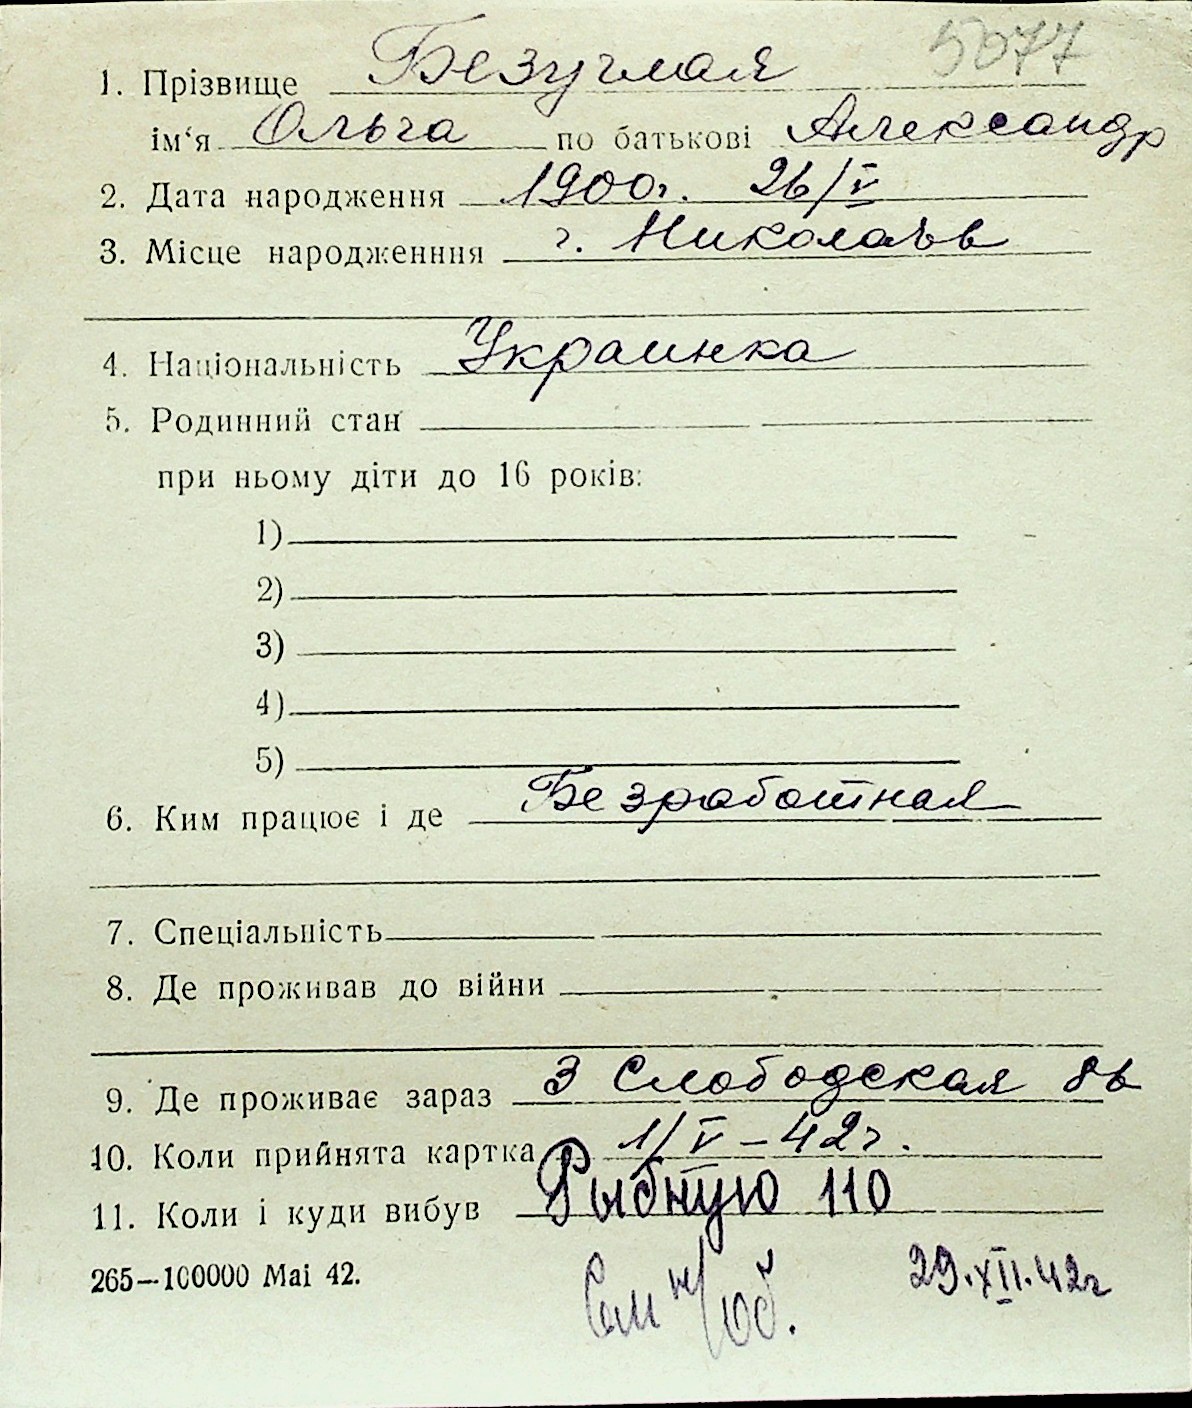 5077
1. Прізвище Безуглая
ім‘я Ольга по батькові Александр
2. Дата народження 1900г. 26/V
3. Місце народженння г. Николаѣв
4. Національність Украинка
5. Родинний стан
при ньому діти до 16 років:
1)
2)
3)
4)
5)
6. Ким працює і де Безработная
7. Спеціальність
8. Де проживав до війни
9. Де проживає зараз 3 Слободская 8в
10. Коли прийнята картка 1/V – 42г.
11. Коли і куди вибув Рыбную 110
265—100000 Mai 42.
См н/об. 29.XII.42г